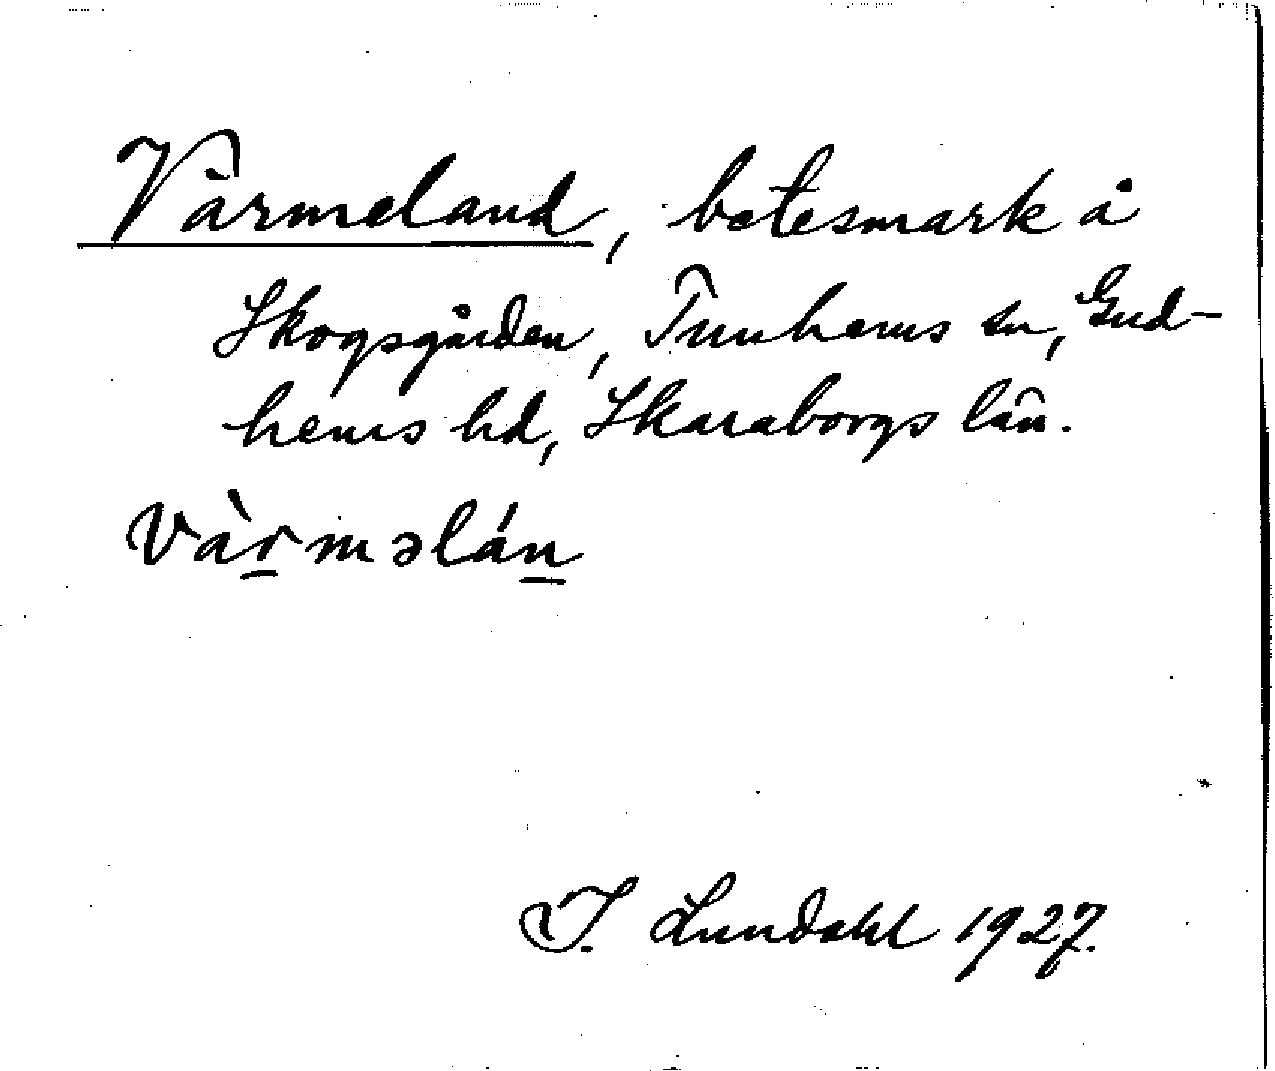 Värmeland, betesmark å
Skogsgården, Tunhems sn, Gud-
hems hd, Skaraborgs län.
Vàr̲məlán̲
I. Lundahl 1927.